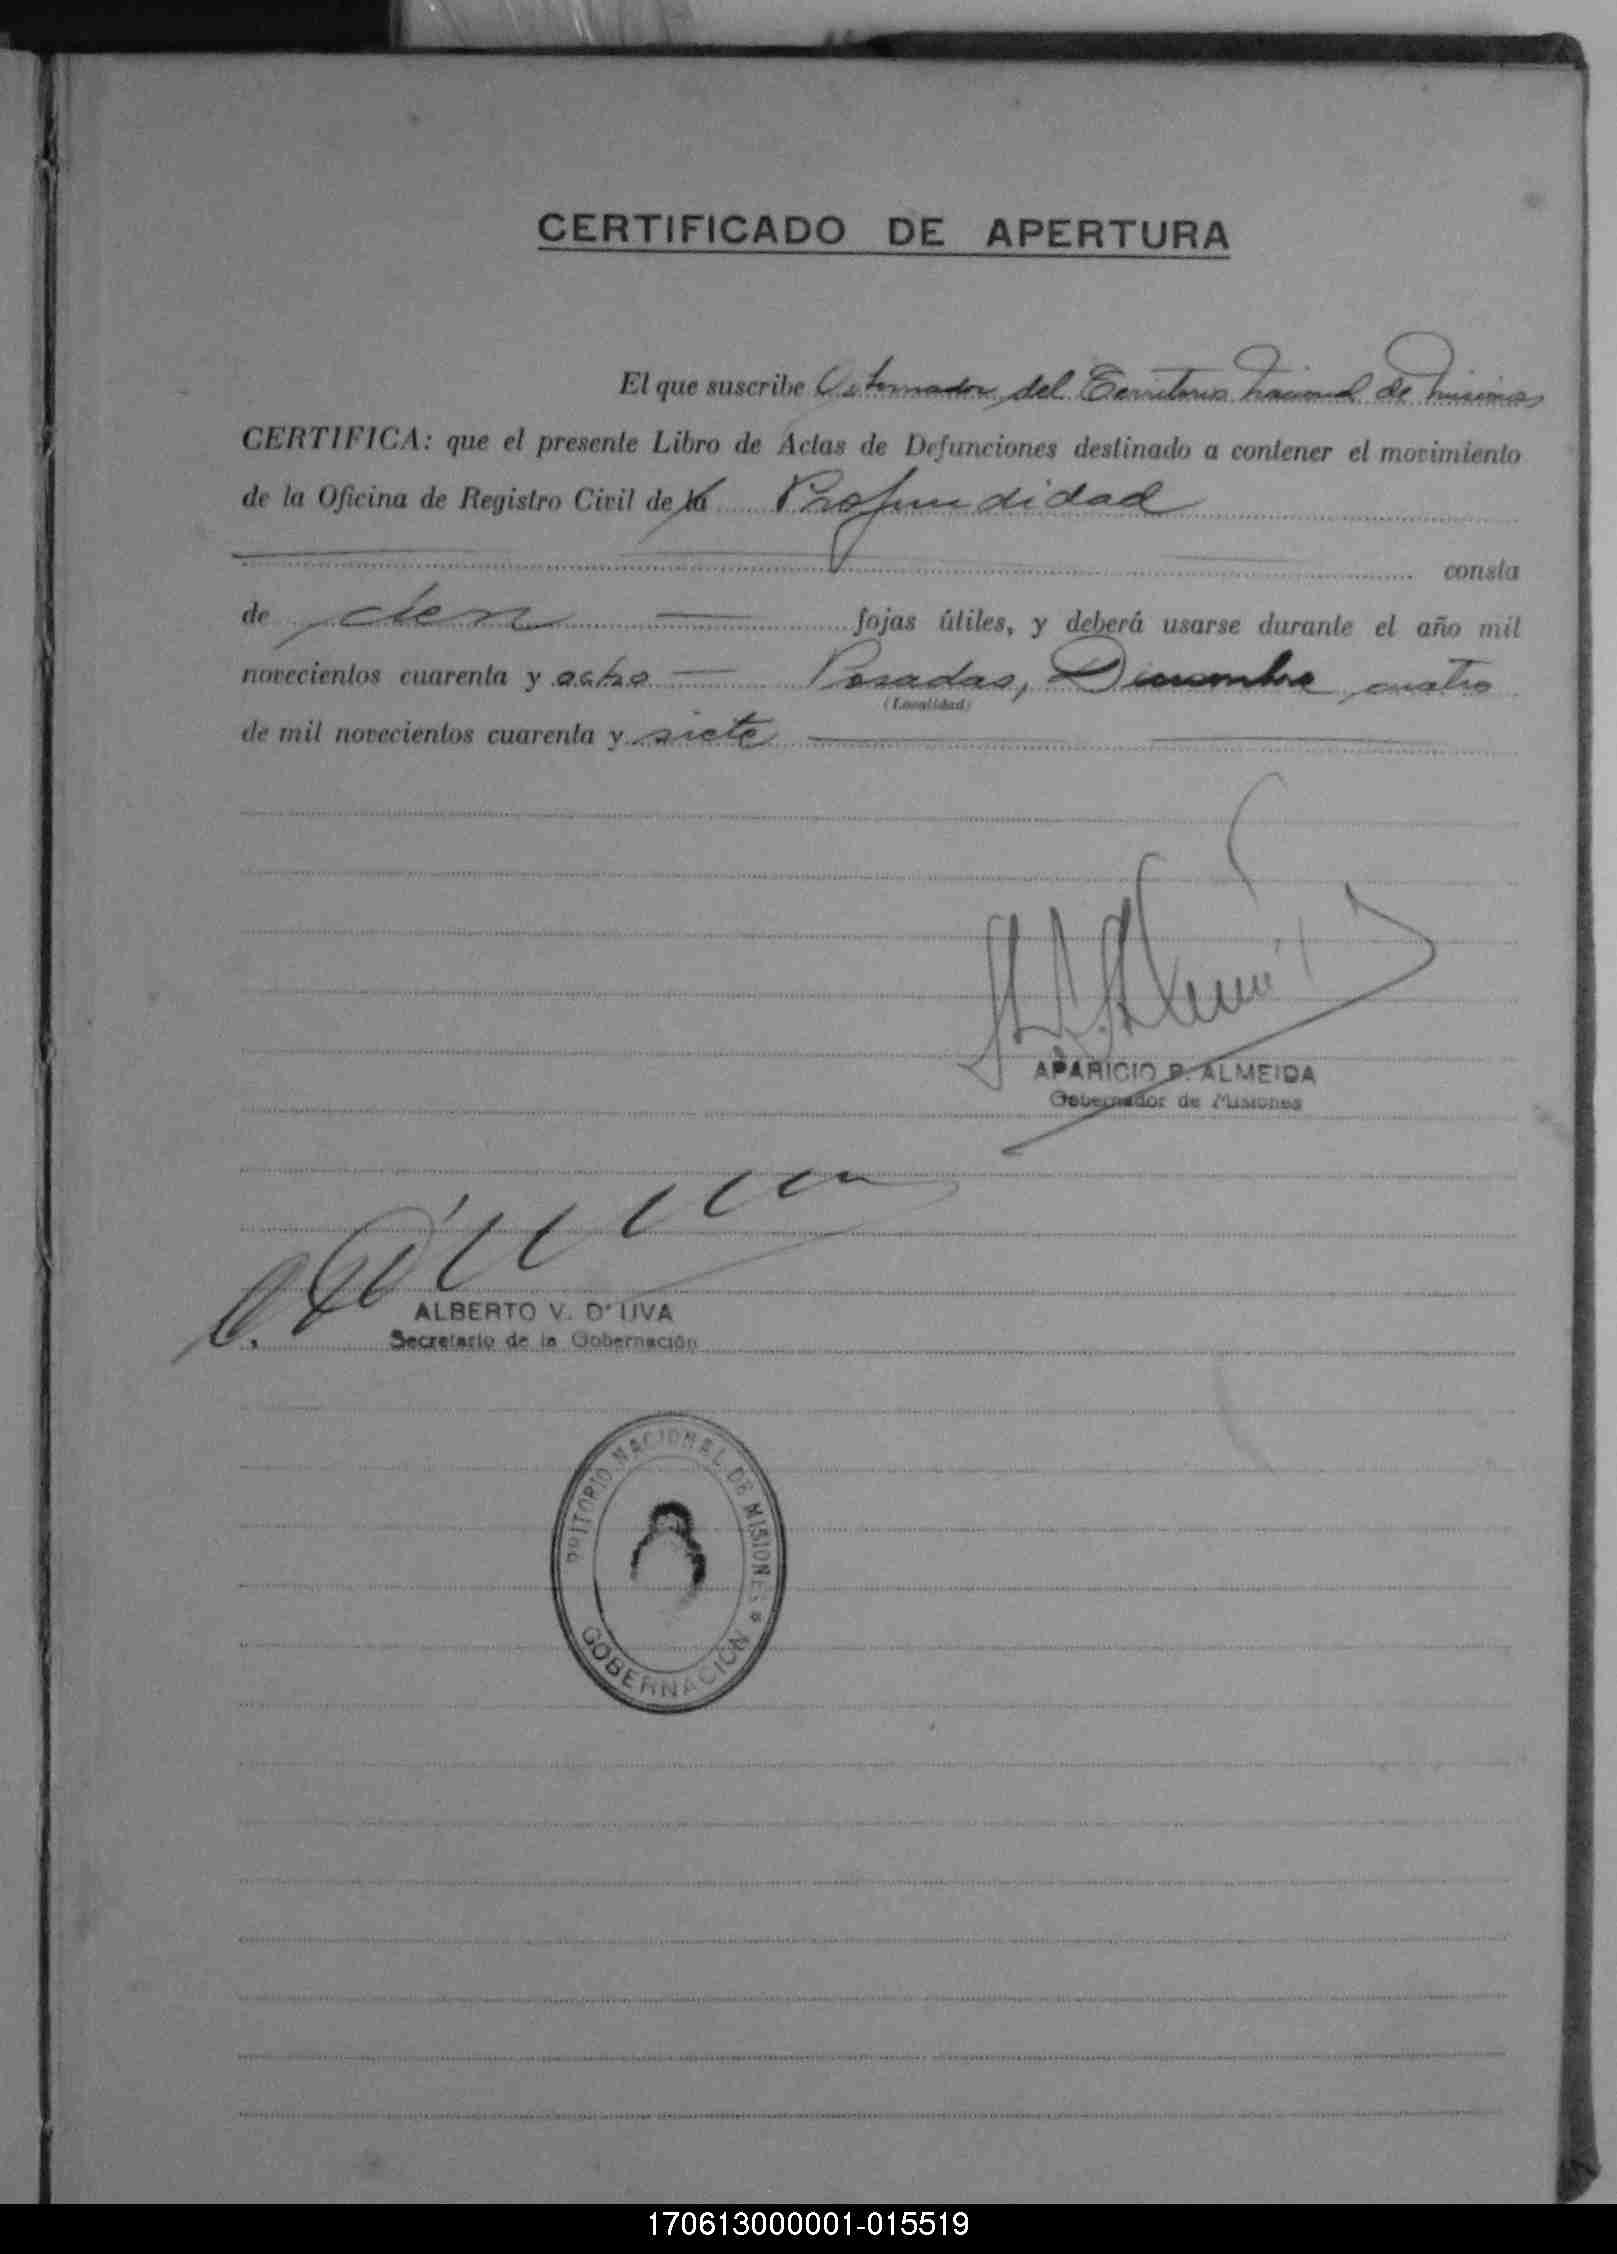 CERTIFICADO DE APERTURA
El que suscribe Gobernador del Territorio Nacional de Misiones
CERTIFICA: que el presente Libro de Actas de Defunciones destinado a contener el movimiento
de la Oficina de Registro Civil de la Profundidad
consta
de cien fojas útiles, y deberá usarse durante el año mil
novecientos cuarenta y ocho Posadas, Diciembre cuatro
(Localidad)
de mil novecientos cuarenta y siete
APARICIO P. ALMEIDA
Gobernador de Misiones
ALBERTO V. D'UVA
Secretario de la Gobernación
RRITORIO NACIONAL DE MISIONES *
GOBERNACION
170613000001-015519